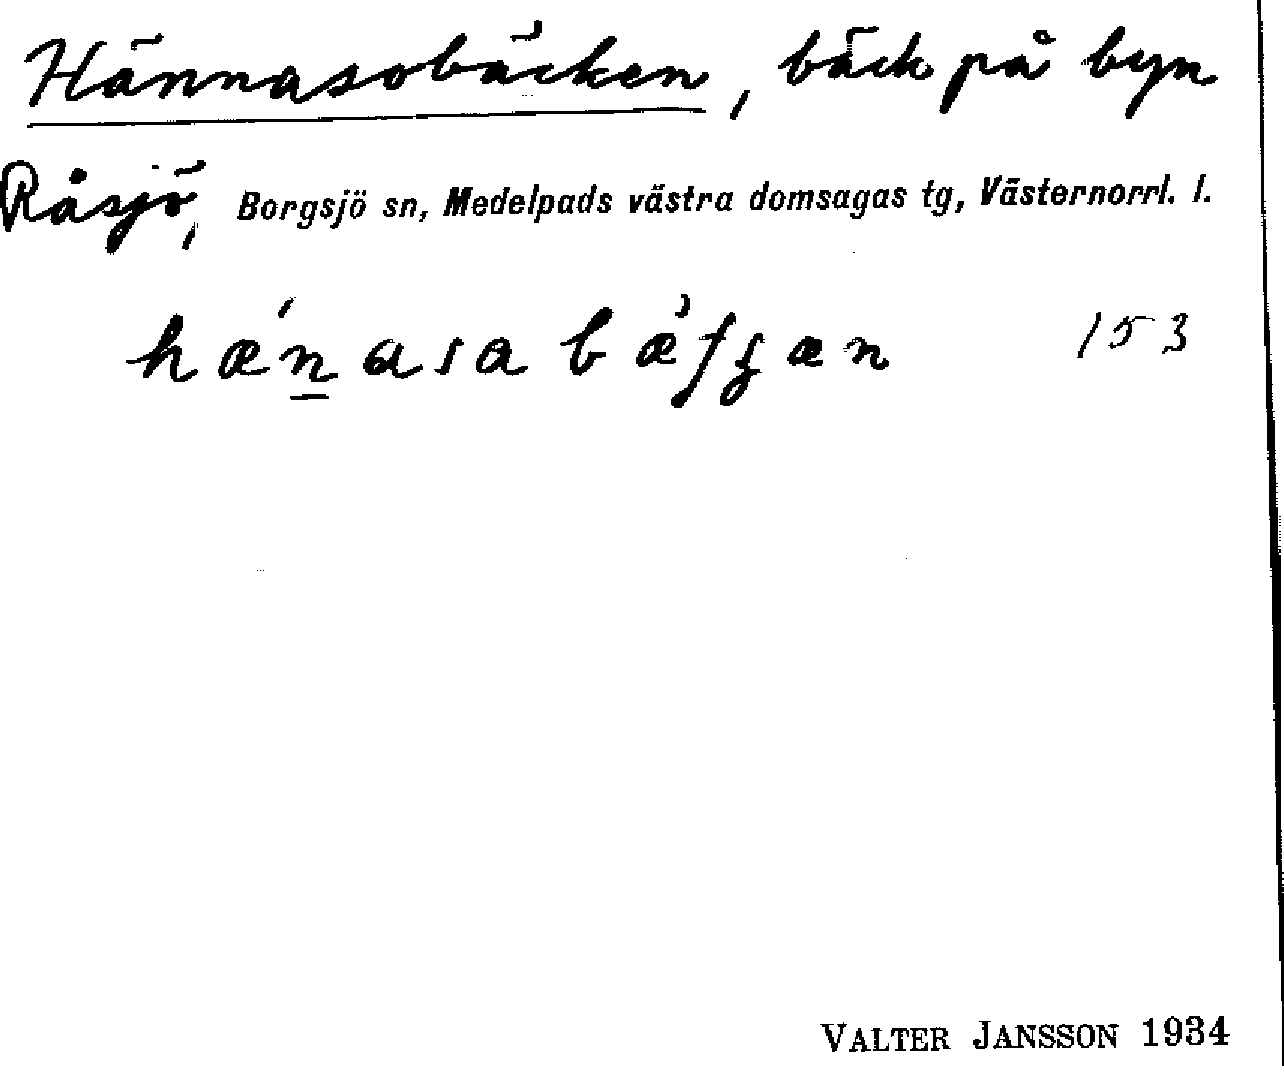 Hännasobäcken, bäck på byn
Råsjö, Borgsjö sn, Medelpads västra domsagas tg, Västernorrl. l.
153
VALTER JANSSON 1934